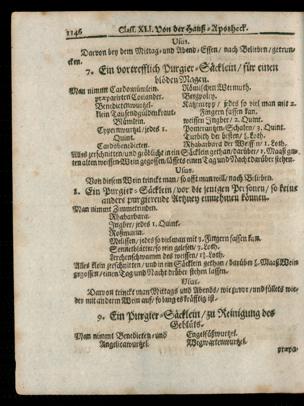 1146 Class. XLI. Von der Hauß-Apotheck.
Usus.
Davon bey dem Mittag- und Abend-Essen / nach Belieben / getrun-
cken.
7. Ein vortrefflich Purgier-Säcklein / für einen
blöden Magen.
Man nimmt Cardomümlein.
præparirten Coriander.
Benedictenwurtzel.
klein Tausendgüldenkraut-
Blümlein.
Cypernwurtzel / jedes 1.
Quint.
Cardobenedicten.
Römischen Wermuth.
Bergpoley.
jedes so viel man mit 2.
Fingern fassen kan.
weissen Ingber / 2. Quint.
Pomerantzen-Schalen / 3. Quint.
Turbith der besten / 1. Loth.
Rhabarbara der besten / 1. Loth.
Alles zerschnitten / und gröblicht in ein Säcklein gethan / darüber 1. Maaß gu-
ten alten weissen Wein gegossen / läßt es einen Tag und Nacht darüber stehen.
Usus.
Von diesem Wein trinckt man / so offt man will / nach Belieben.
8. Ein Purgier-Säcklein / vor die jenigen Personen / so keine
anders purgierende Artzney einnehmen können.
Man nimmt Zimmetrinden.
Rhabarbara.
Ingber / jedes 1. Quint.
Roßmarin.
Melissen / jedes so viel man mit 3. Fingern fassen kan.
Sennetblätter / so rein gelesen / 3. Loth.
Lerchenschwamm des weissen / Loth.
Alles klein zerschnitten / und in ein Säcklein gethan / darüber 1. Maaß Wein
gegossen / einen Tag und Nacht drüber stehen lassen.
Usus.
Davon trinckt man Mittags und Abends / wie zuvor / und füllets wie-
der mit anderm Wein auf / so lang es kräfftig ist.
9. Ein Purgier-Säcklein / zu Reinigung des
Geblüts.
Man nimmt Benedicten- und
Angelicawurtzel.
Engelsüßwurtzel.
Wegwartenwurtzel.
præpa-